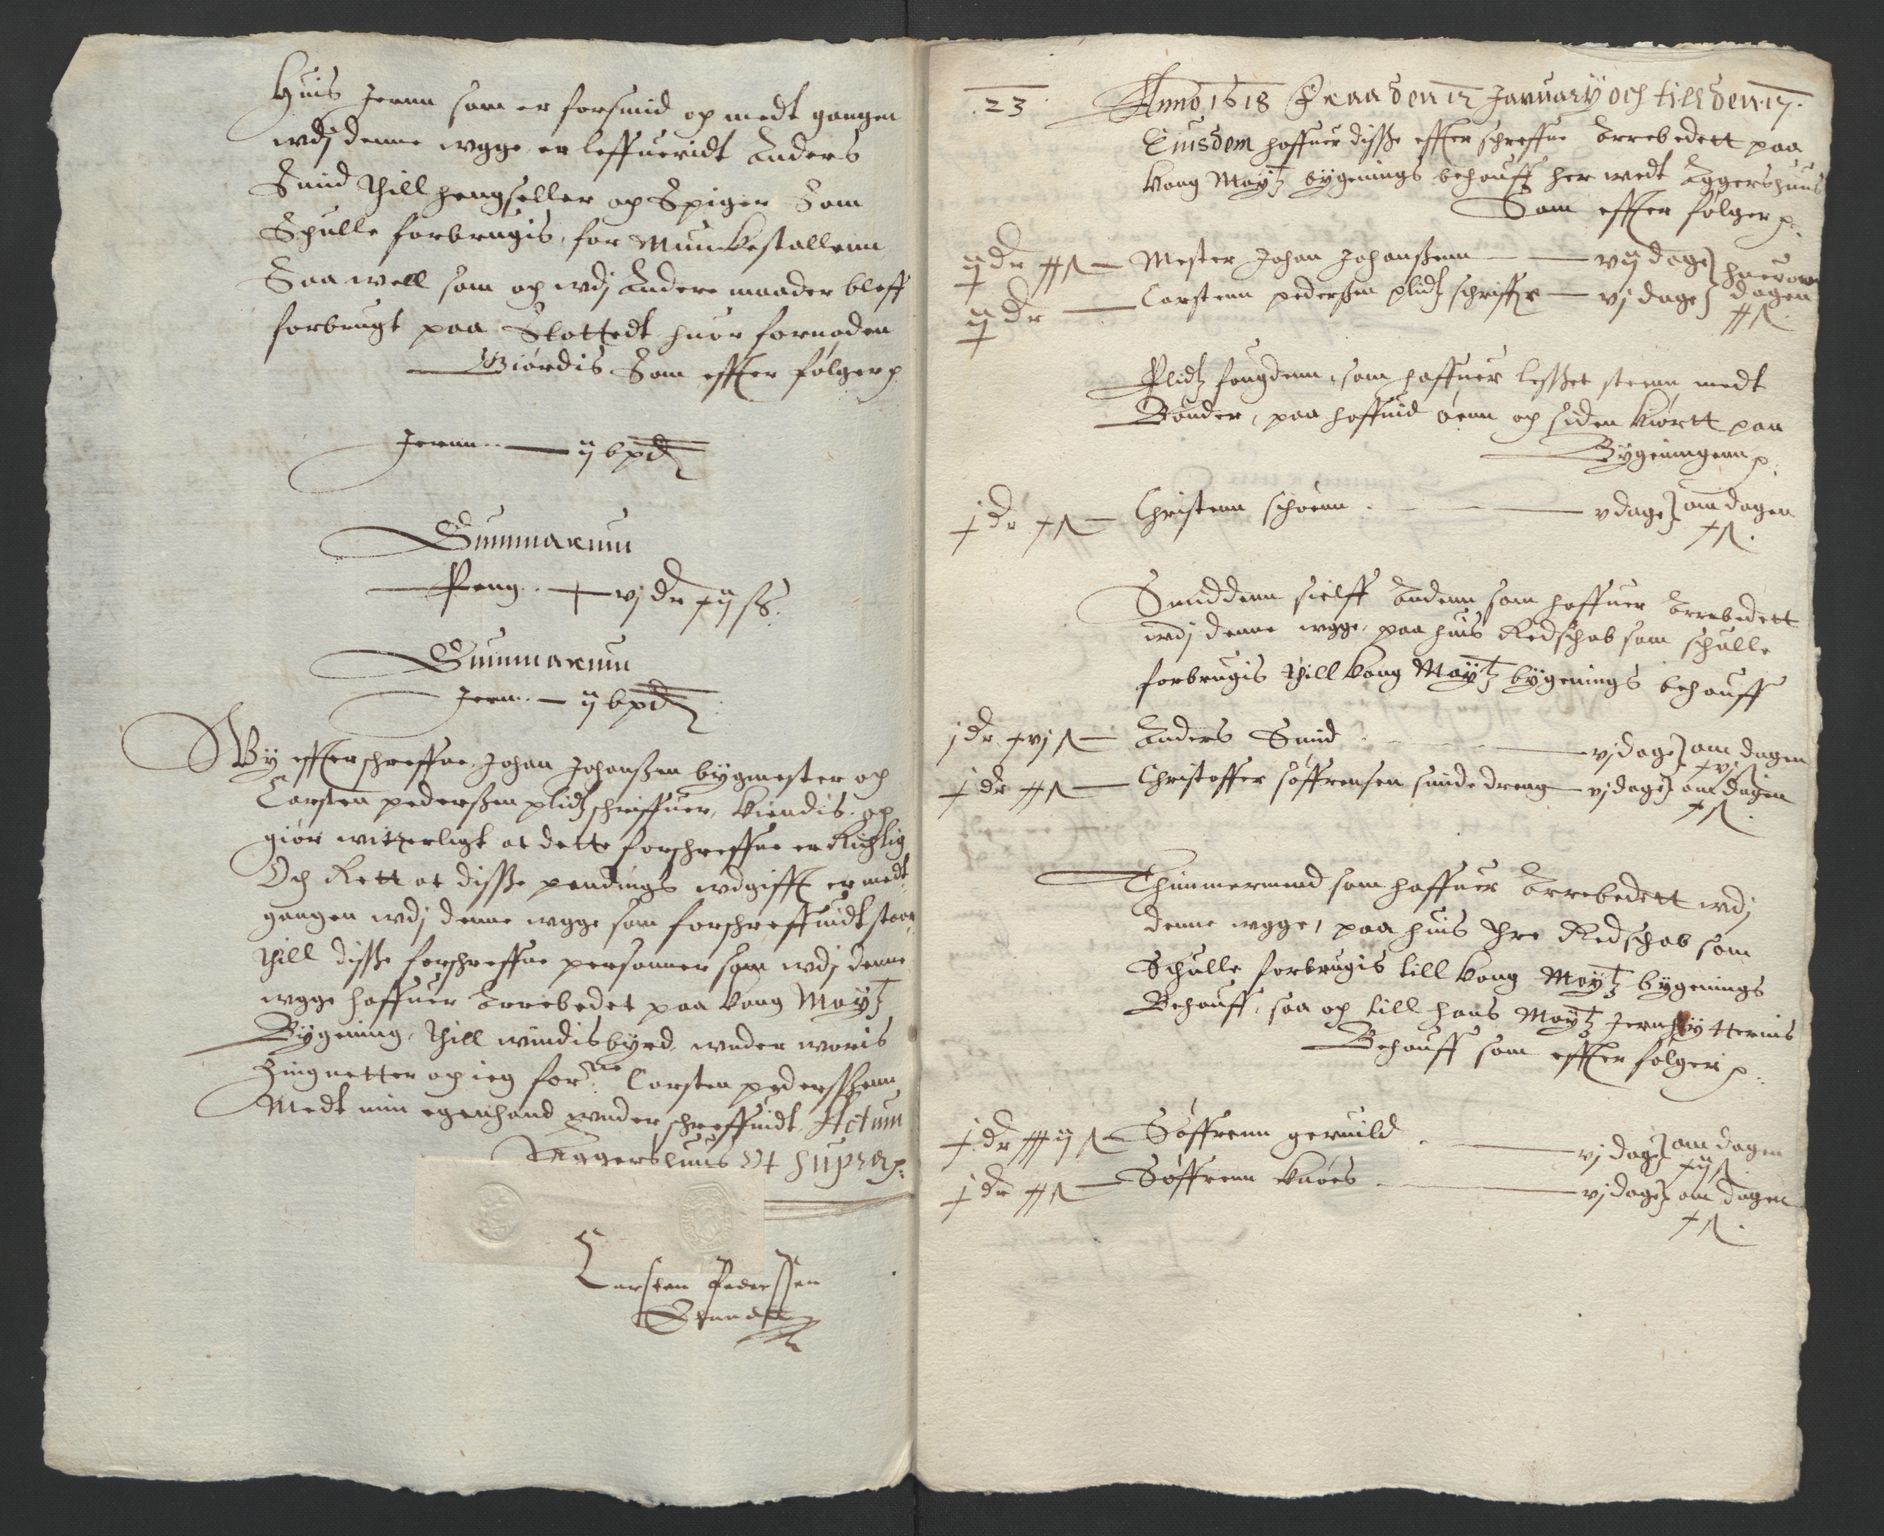 Huis Jernn som er forsmid op medt gangen
wdj denne wgge er leffueridt Anders
Smid thill hengseller op Spiger Som
Schulle forbrugis, for Munckestallenn
Saa well som op wdj Andere maader bleff
forbrugt paa Slottedt huor fornøden
Giørdis Som effter følger p.
Jernn — ij bpd
Summarum
Peng — xvj dr xij ss.
Summarum
Jern — ij bpd
Wy effterschreffne, Johan Johanßen bygmester op
Carsten pederßen plidtz schriffuer, kiendis op
giør witterligt at dette forschreffne er Richtig
Och Rett at disße pendings wdgifft er medt
gangen wdj denne wgge som forschreffuidt staar
thill disße forschreffne personner som wdj denne
wgge haffuer Arrebedet paa kong Maytz
Bygening, thill windisbyrd wnder woris
Zingnetter op ieg forne Carsten pederssenn
Medt min egenhand wnder schreffuidt Actum
Aggershuus Ut supra p.
Carsten Pederssen
23
Anno 1618 Fraa den 12 January och till den 17.
Eiusdem haffuer disße effter schreffne Arrebedett paa
kong Maytz bygenings behouff her wedt Aggershuus
Som effter følger p.
ij dr xx s — Mester Johan Johanßenn — vij dage huer om
ij dr — Carstenn pederßen plidtz schriffuer — vj dage dagen
xx s.
Plidtz fougdenn, som haffuer lesßet steenn medt
Bønder, paa hoffuid øenn op siden kiørtt paa
Bygeningenn p.
j dr x s — Christenn schoenn — v dage om dagen
x s.
Smiddenn sielff Andenn som haffuer Arrebedett
wdj denne wgge, paa huis Redschab som schulle
forbrugis thill kong Maytz bygenings behouff
j dr xvj s — Anders Smid — vj dage om dagen
xvj s
j dr xx s — Christoffer søffrensen smidedreng — vj dage om dagen
x s.
Thimmermend som haffuer Arrebedett wdj
denne wgge, paa huis thre Redschab som
Schulle forbrugis till kong Maytz bygenings
Behouff, saa op till hans Maytz Jernhytternis
Behouff som effter følger p.
j dr xxxij s — Søffrenn geruild — vj dage om dagen
xij s.
j dr xx s — Søffrenn kaaes — vj dage om dagen
x s.